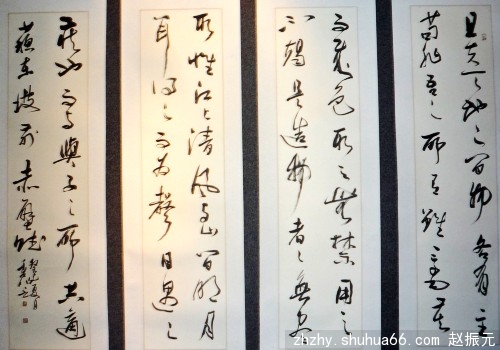 且夫天地之間物各有主
苟非吾之所有雖一毫莫
取惟江上清風與山間明月
耳得之而為聲目遇之
而成色取之無禁用之
不竭是造物者之無盡
藏也而吾與子之所共適
蘇東坡前赤壁賦
zhzhy.shuhua66.com 赵振元